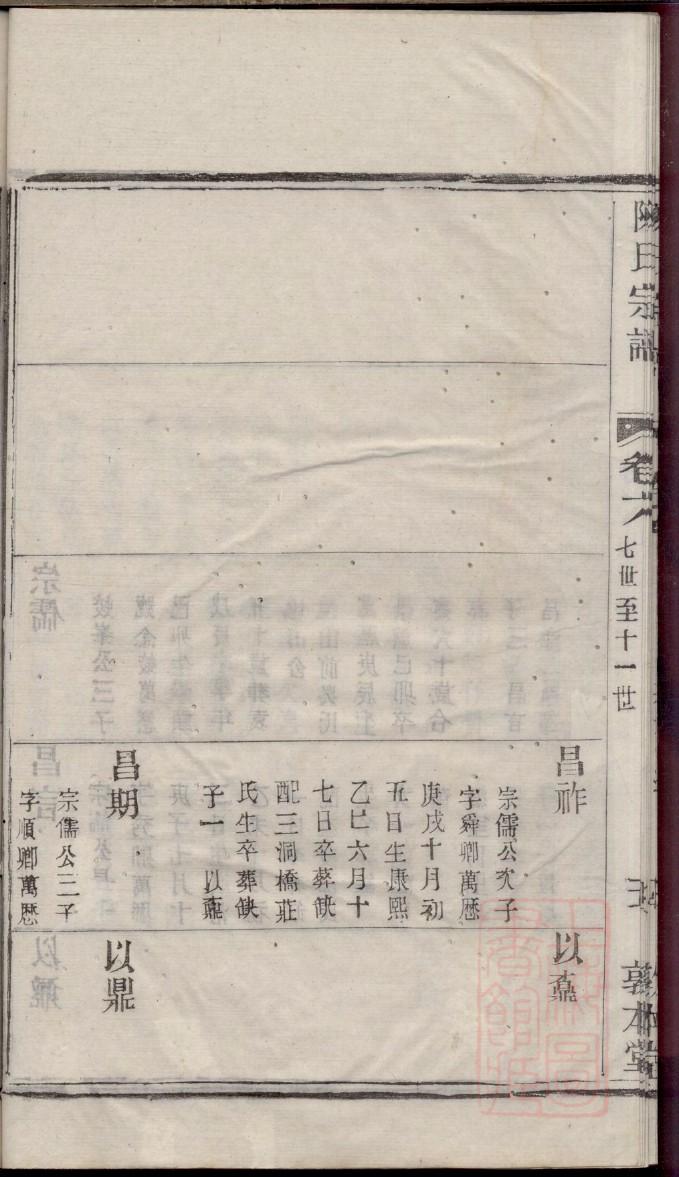 陳氏宗譜
卷六
七世至十一世
敦本堂
昌祚
宗儒公次子
字舜卿萬曆
庚戌十月初
五日生康熙
乙巳六月十
七日卒葬缺
配三洞橋莊
氏生卒葬缺
子一 以鼒
昌期
宗儒公三子
字順卿萬曆
以鼒
以鼎